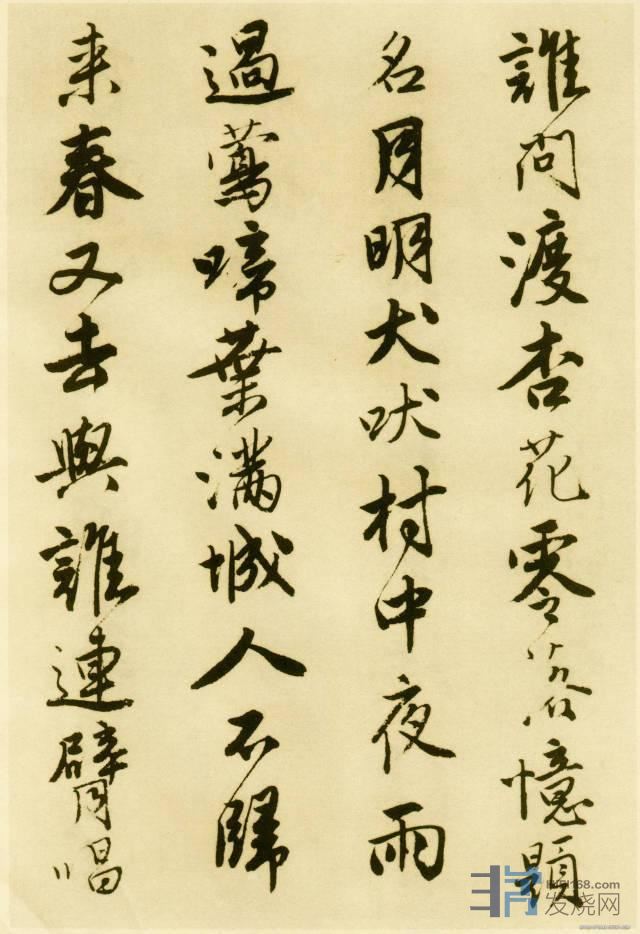 誰問渡杏花零落憶題
名月明犬吠村中夜雨
過鶯啼葉滿城人不歸
来春又去與誰連臂唱
HIFI168.com
发烧网